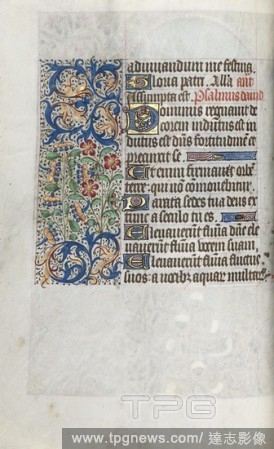 adiuuandum me festina
Gloria patri. Alla. ant
Assumpta est. Psalmus dauid
Dominus regnauit de
corem indutus est in
dutus est dns fortitudinē et
precinxit se.
Et enim firmauit orbē
terre: qui nō comouebitur
Parata sedes tua deus ex
tunc a seculo tu es.
Eleuauerunt flumina dn̄e ele
uauerunt flumina uocem suam.
Eleuauerunt flumina fluctus
suos: a uocibȝ aquarꝫ multarꝫ
TPG
www.tpgnews.com/達志影像